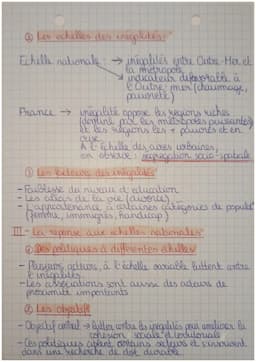 ② Les échelles des inégalités:
Echelle nationale: → inégalités entre Outre-Mer et
la métropole
→ indicateur défavorable à
l'Outre mer (chaumage,
pauvreté)
France → inégalité oppose les régions riches
(dominé par les métropoles puissantes)
et les régions les + pauvres et en
crise
A l'échelle des aires urbaines,
on observe: ségrégation socio-spatiale
① Les facteurs des inégalités
- Faiblesse du niveau d'éducation
- Les aléas de la vie (divorce)
- L'appartenance à certaines catégories de populat°
(femme, immigrés, handicap)
III - La réponse aux échelles nationales
① Des politiques à différentes échelles
- Plusieurs acteurs, à l'échelle sociale luttent contre
l'inégalités.
- Les associations sont aussi des acteurs de
proximité importants
② Les objectifs
- Objectif central → lutter contre les inégalités pour améliorer la
cohésion sociale et territoriale
- Ces politiques aident certains acteurs et s'inscrivent
dans une recherche de dvt durable